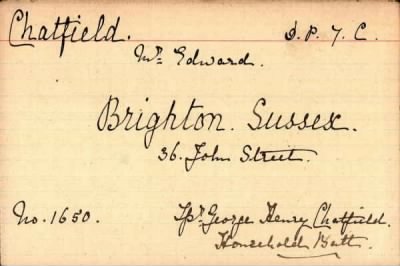 Chatfield. D. P. 7. C.
Mr. Edward.
Brighton. Sussex.
36. John Street.
No. 1650. Tpr. George Henry Chatfield.
Household Batt.